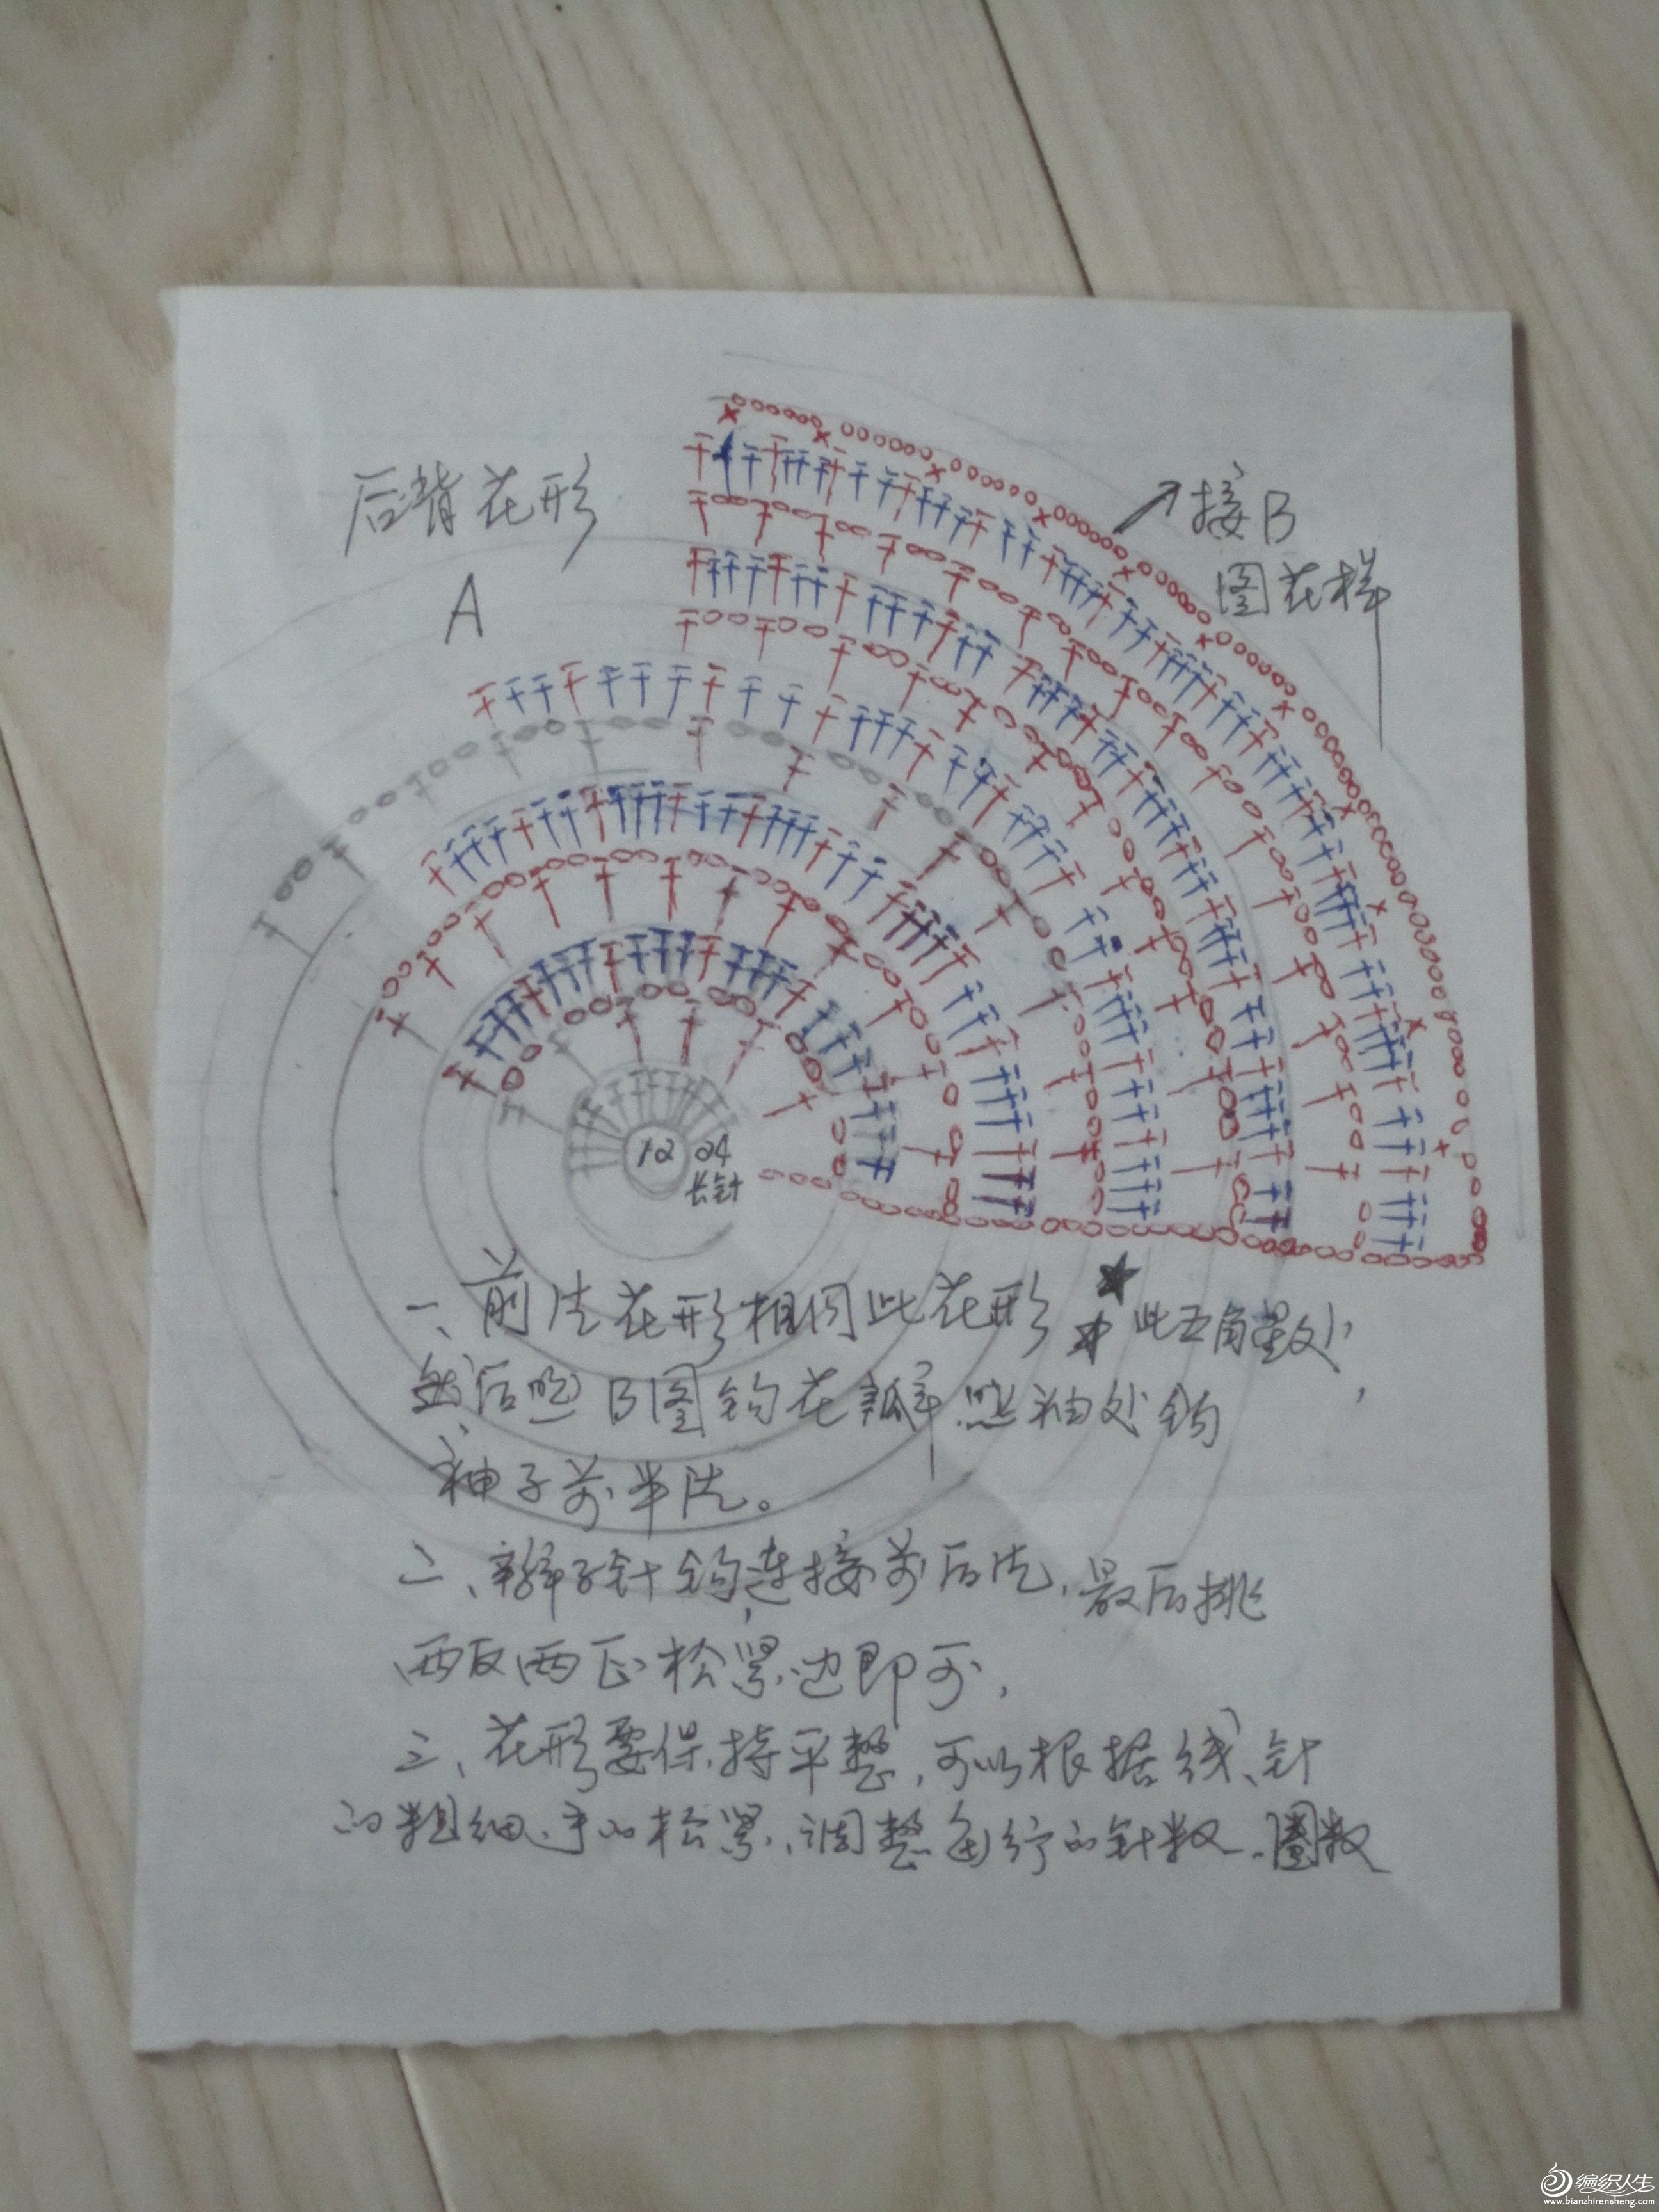 后背花形
A
接B
图花样
12 24
长针
一、前片花形相同此花形 ★ 此五角星处,
然后照B图钩花瓣照袖处钩
袖子前半片。
二、辫子针钩连接前后片,最后挑
两反两正松紧边即可,
三、花形要保持平整,可以根据线、针
的粗细、手的松紧、调整每行的针数、圈数
编织人生
www.bianzhirensheng.com